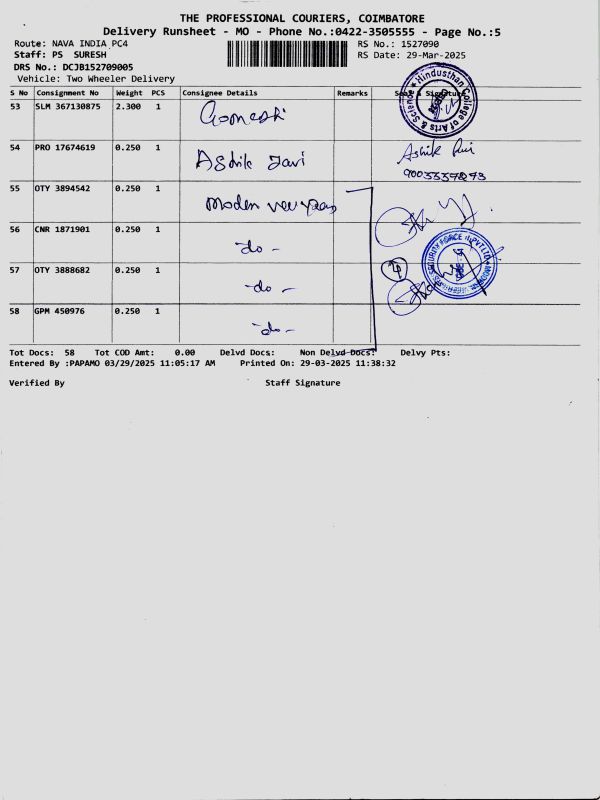 THE PROFESSIONAL COURIERS, COIMBATORE
Delivery Runsheet - MO - Phone No.:0422-3505555 - Page No.:5
Route: NAVA INDIA PC4 RS No.: 1527090
Staff: PS SURESH RS Date: 29-Mar-2025
DRS No.: DCJB152709005
Vehicle: Two Wheeler Delivery
S No Consignment No Weight PCS Consignee Details Remarks Seal & Signature
53 SLM 367130875 2.300 1
54 PRO 17674619 0.250 1 Ashik
55 OTY 3894542 0.250 1
56 CNR 1871901 0.250 1 -do-
57 OTY 3888682 0.250 1 -do-
58 GPM 450976 0.250 1 -do-
Hindusthan College of Arts & Science
Tot Docs: 58 Tot COD Amt: 0.00 Delvd Docs: Non Delvd Docs: Delvy Pts:
Entered By :PAPAMO 03/29/2025 11:05:17 AM Printed On: 29-03-2025 11:38:32
Verified By Staff Signature